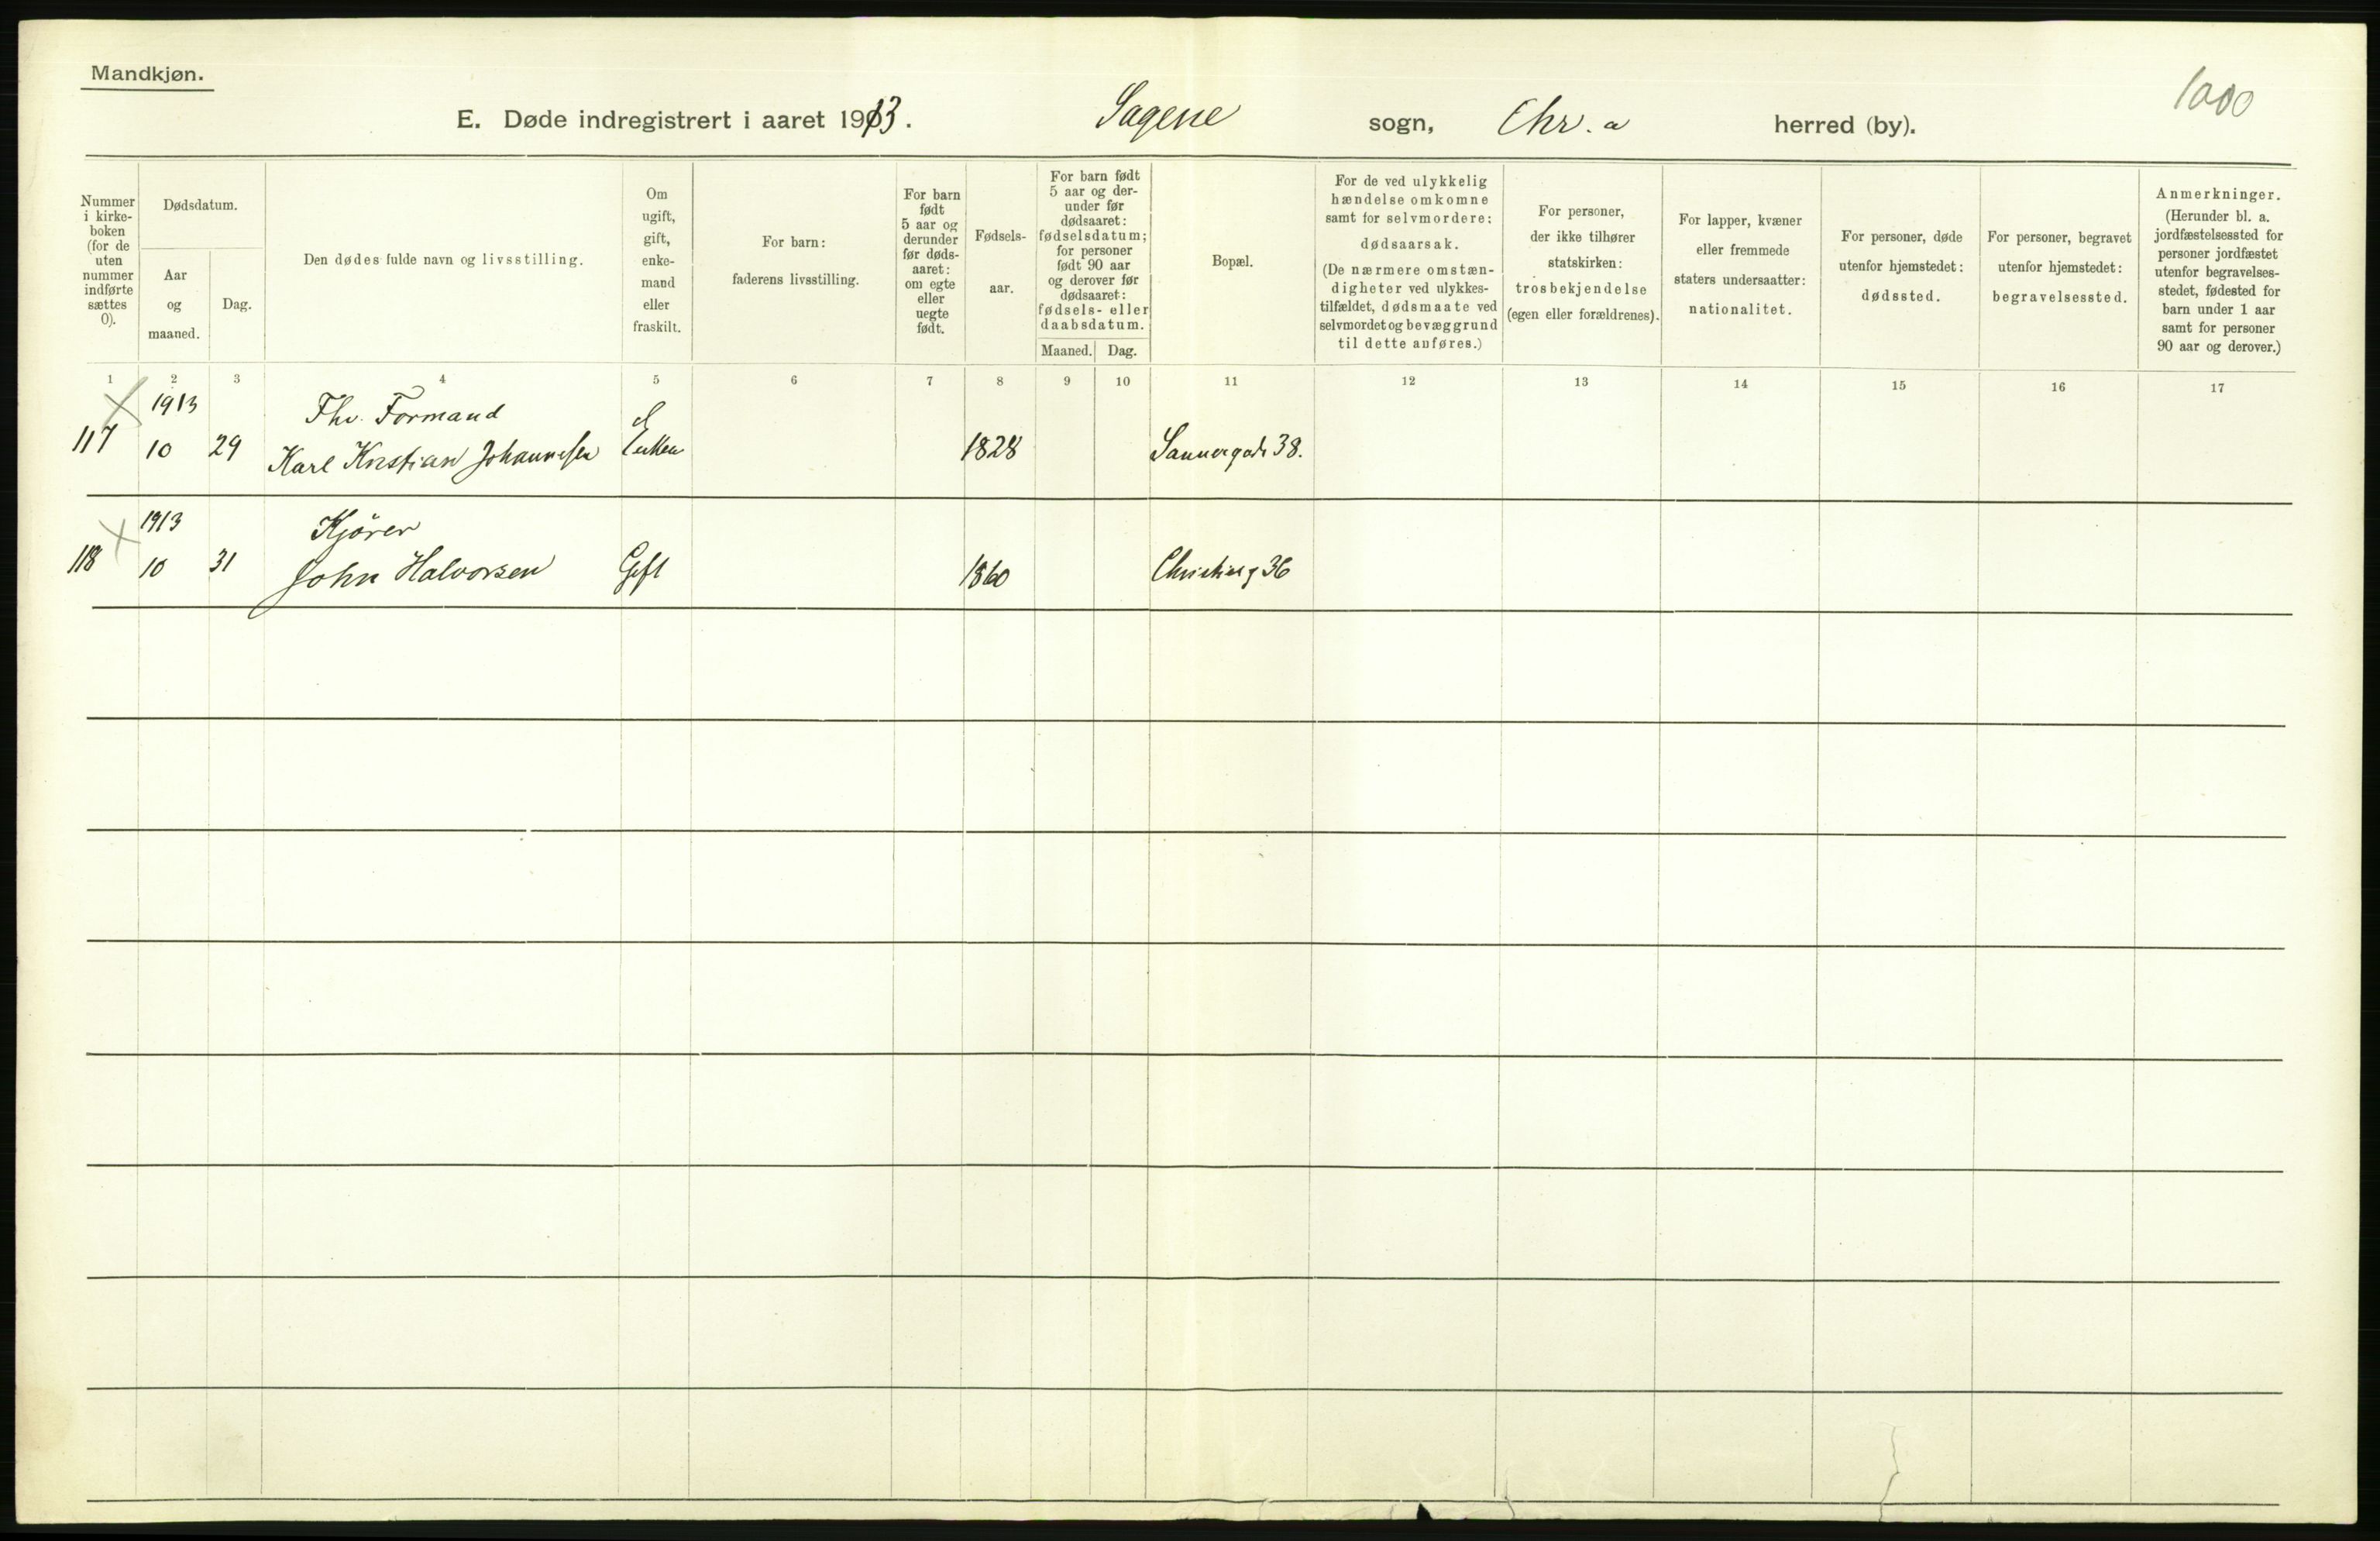 Mandkjøn.
1000
E. Døde indregistrert i aaret 1913. Sagene sogn, Chr.a herred (by).
Nummer
i kirke-
boken
(for de
uten
nummer
indførte
sættes
0).
Dødsdatum.
Aar
og
maaned.
Dag.
Den dødes fulde navn og livsstilling.
Om
ugift,
gift,
enke-
mand
eller
fraskilt.
For barn:
faderens livsstilling.
For barn
født
5 aar og
derunder
før døds-
aaret:
om egte
eller
uegte
født.
Fødsels-
aar.
For barn født
5 aar og der-
under før
dødsaaret:
fødselsdatum;
for personer
født 90 aar
og derover før
dødsaaret:
fødsels- eller
daabsdatum.
Maaned.
Dag.
Bopæl.
For de ved ulykkelig
hændelse omkomne
samt for selvmordere:
dødsaarsak.
(De nærmere omstæn-
digheter ved ulykkes-
tilfældet, dødsmaate ved
selvmordet og bevæggrund
til dette anføres.)
For personer,
der ikke tilhører
statskirken:
trosbekjendelse
(egen eller forældrenes).
For lapper, kvæner
eller fremmede
staters undersaatter:
nationalitet.
For personer, døde
utenfor hjemstedet:
dødssted.
For personer, begravet
utenfor hjemstedet:
begravelsessted.
Anmerkninger.
(Herunder bl. a.
jordfæstelsessted for
personer jordfæstet
utenfor begravelses-
stedet, fødested for
barn under 1 aar
samt for personer
90 aar og derover.)
1 2 3 4 5 6 7 8 9 10 11 12 13 14 15 16 17
1913 Fhv. Formand
117 10 29 Karl Kristian Johannesen 1828 Sannergade 38.
1913 Kjörer
118 10 31 John Halvorsen Gift 1860 Christiesg 36